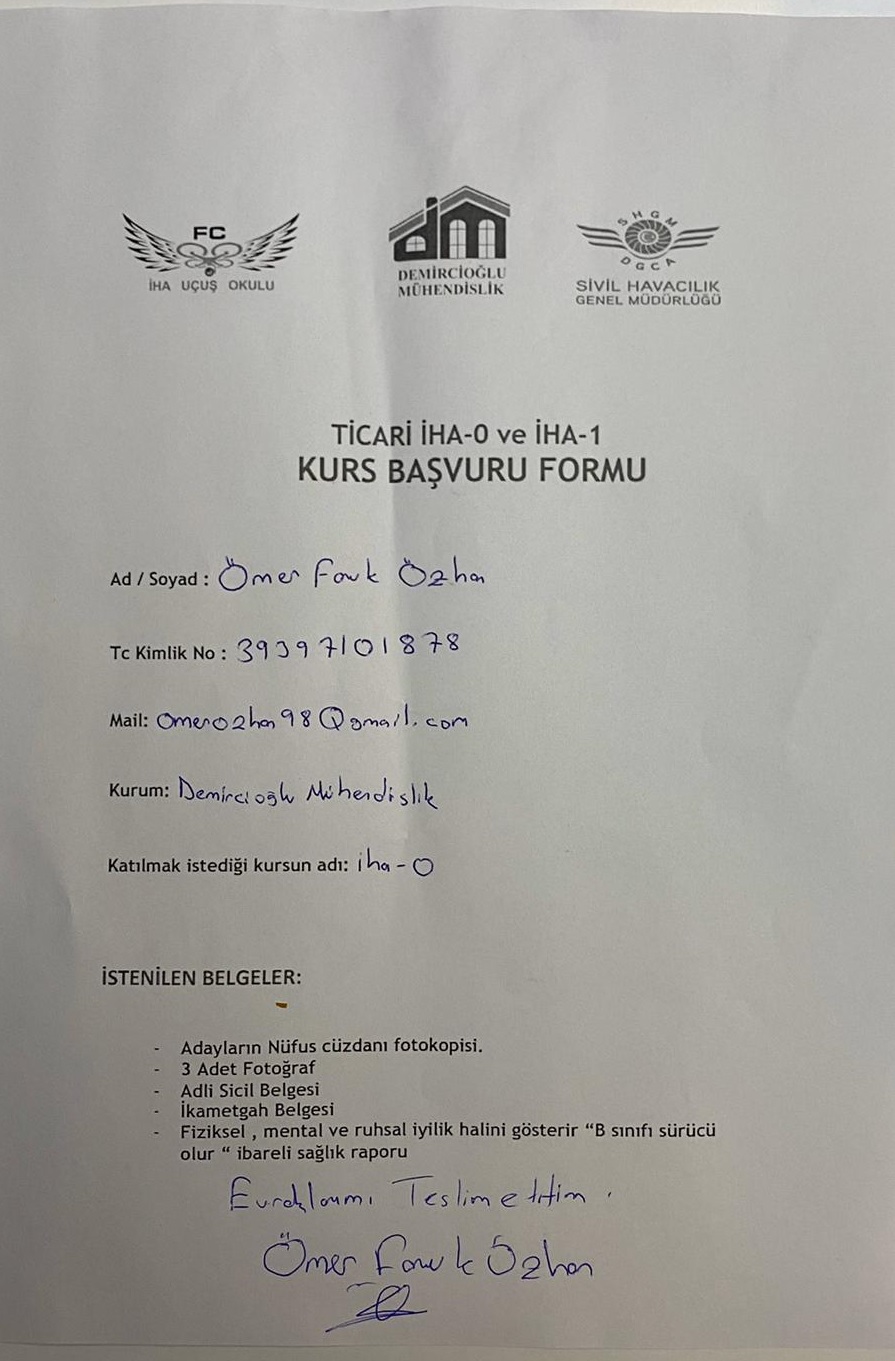 FC
İHA UÇUŞ OKULU
dm
DEMİRCİOĞLU
MÜHENDİSLİK
SHGM
DGCA
SİVİL HAVACILIK
GENEL MÜDÜRLÜĞÜ
TİCARİ İHA-0 ve İHA-1
KURS BAŞVURU FORMU
Ad / Soyad : Ömer Faruk Özhan
Tc Kimlik No : 39397101878
Mail: omerozhan98@gmail.com
Kurum: Demircioğlu Mühendislik
Katılmak istediği kursun adı: iha-0
İSTENİLEN BELGELER:
- Adayların Nüfus cüzdanı fotokopisi.
- 3 Adet Fotoğraf
- Adli Sicil Belgesi
- İkametgah Belgesi
- Fiziksel , mental ve ruhsal iyilik halini gösterir “B sınıfı sürücü
olur “ ibareli sağlık raporu
Evraklarımı Teslim ettim.
Ömer Faruk Özhan